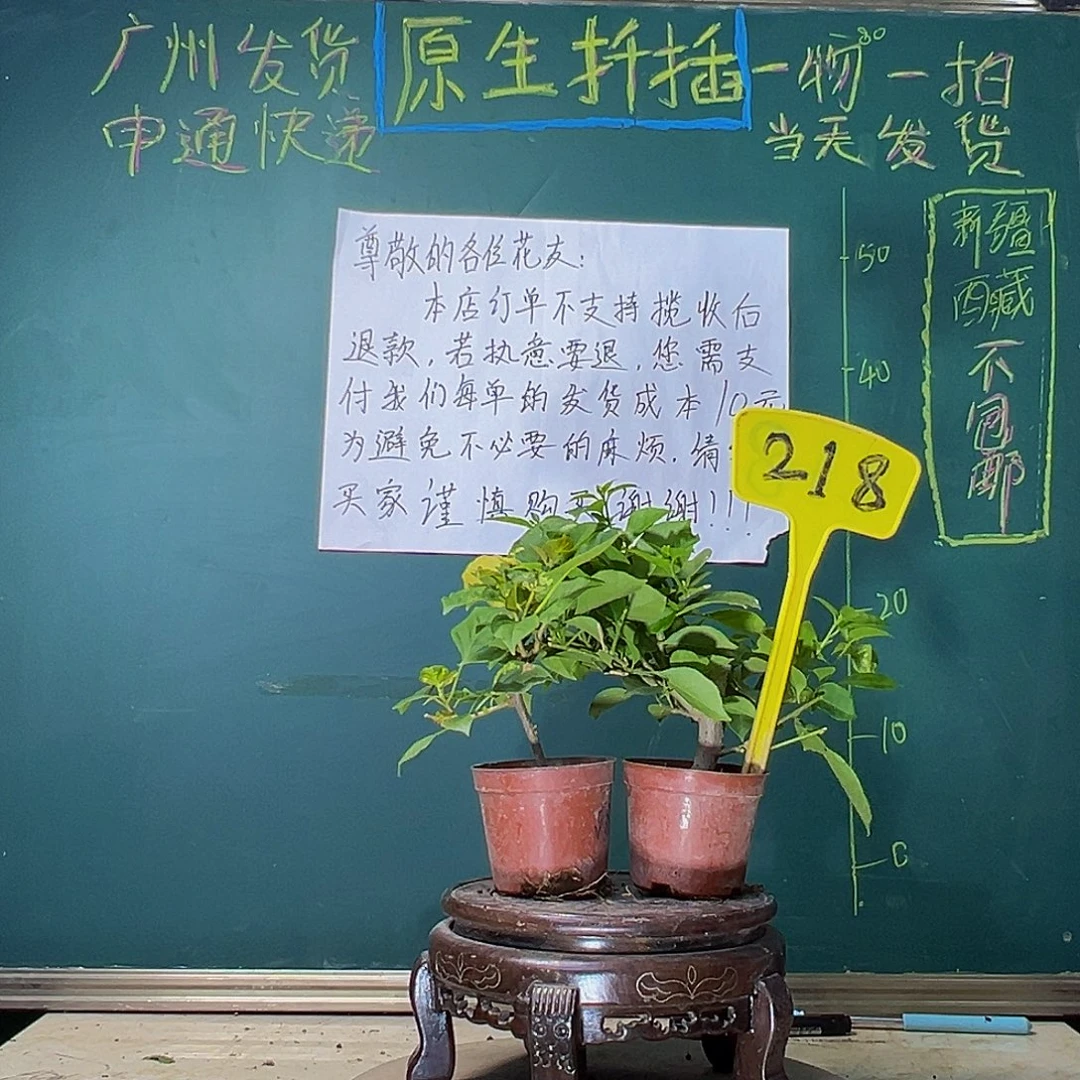 广州发货
申通快递
原生扦插
一物一拍
当天发货
尊敬的各位花友:
本店订单不支持揽收后
退款,若执意要退,您需支
付我们每单的发货成本10元
为避免不必要的麻烦.
买家谨慎购买 谢谢!!!
218
80
50
40
20
10
0
新疆
西藏
不
包
邮